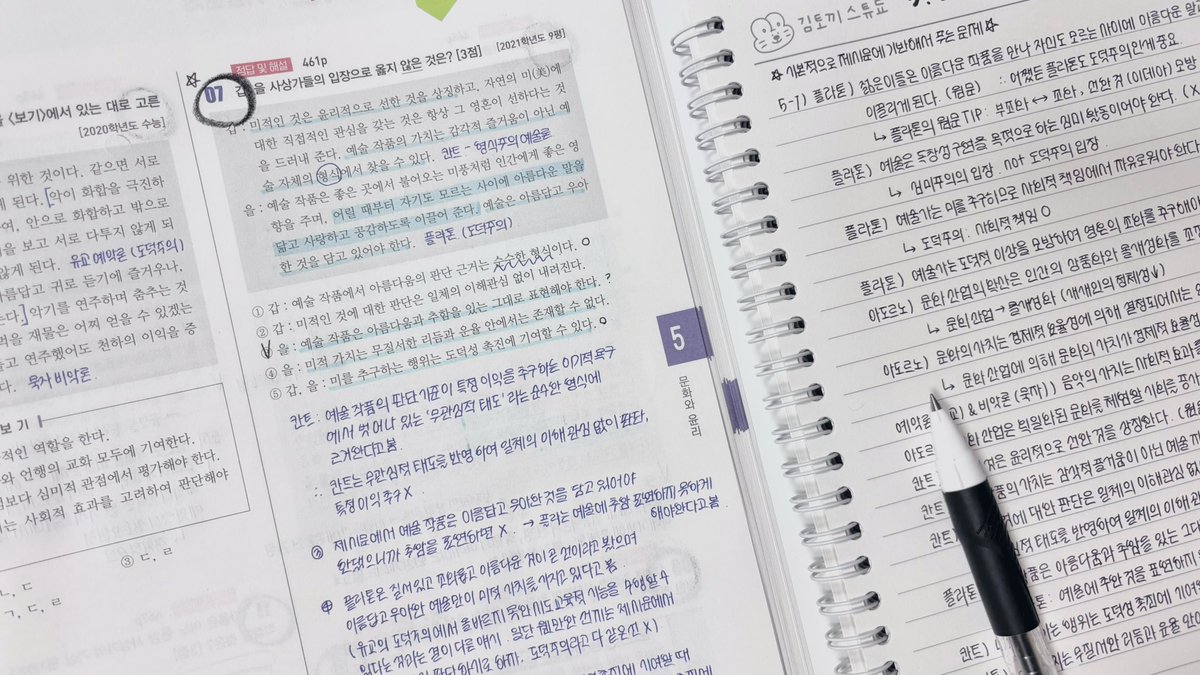 을 <보기>에서 있는 대로 고른
[2020학년도 수능]
위한 것이다. 같으면 서로
게 된다. [악이 화합을 극진하
여, 안으로 화합하고 밖으로
을 보고 서로 다투지 않게 되
않게 된다. 유교 예악론 (도덕주의)
아름답고 귀로 듣기에 즐거우나,
는다.] 악기를 연주하며 춤추는 것
역을 재물은 어찌 얻을 수 있겠는
고 연주했어도 천하의 이익을 증
다. 묵자 비악론
보 기
적인 역할을 한다.
와 언행의 교화 모두에 기여한다.
보다 심미적 관점에서 평가해야 한다.
는 사회적 효과를 고려하여 판단해야
③ ㄷ, ㄹ
ㄴ, ㄷ
ㄱ, ㄷ, ㄹ
정답 및 해설 461p
[2021학년도 9평]
07 갑, 을 사상가들의 입장으로 옳지 않은 것은? [3점]
갑 : 미적인 것은 윤리적으로 선한 것을 상징하고, 자연의 미(美)에
대한 직접적인 관심을 갖는 것은 항상 그 영혼이 선하다는 것
을 드러내 준다. 예술 작품의 가치는 감각적 즐거움이 아닌 예
술 자체의 형식에서 찾을 수 있다. 칸트 - 형식주의 예술론
을 : 예술 작품은 좋은 곳에서 불어오는 미풍처럼 인간에게 좋은 영
향을 주며, 어릴 때부터 자기도 모르는 사이에 아름다운 말을
닮고 사랑하고 공감하도록 이끌어 준다. 예술은 아름답고 우아
한 것을 담고 있어야 한다. 플라톤 (도덕주의)
① 갑 : 예술 작품에서 아름다움의 판단 근거는 순수한 형식이다. O
② 갑 : 미적인 것에 대한 판단은 일체의 이해관심 없이 내려진다.
③ 을 : 예술 작품은 아름다움과 추함을 있는 그대로 표현해야 한다. ?
④ 을 : 미적 가치는 무질서한 리듬과 운율 안에서는 존재할 수 없다.
⑤ 갑, 을 : 미를 추구하는 행위는 도덕성 촉진에 기여할 수 있다. O
칸트 : 예술 작품의 판단 기준이 특정 이익을 추구하는 이기적 욕구
에서 벗어나 있는 '무관심적 태도' 라는 순수한 형식에
근거한다고 봄
∴ 칸트는 무관심적 태도를 반영하여 일체의 이해 관심 없이 판단,
특정 이익 추구 X
③ 제시문에서 예술 작품은 아름답고 우아한 것을 담고 있어야
한댔으니까 추함을 표현하면 X. → 플라는 예술에 추함 표현하지 못하게
해야한다고 봄
④ 플라톤은 질서있고 조화롭고 아름다운 것이 곧 선이라고 봤으며
아름답고 우아한 예술만이 미적 가치를 가지고 있다고 봄.
(유교의 도덕주의에서 올바르지 못한 시도 교육적 기능을 수행할 수
있다는 것과는 결이 다름 얘시. 일단 웬만한 선지는 제시문에서
판단하기로 하자. 도덕주의라고 다 같은 건 X)
5
문화와 윤리
김토끼 스튜디오
☆ 기본적으로 제시문에 기반해서 푸는 문제 ☆
5-7) 플라톤) 젊은이들은 아름다운 작품을 만나 자신도 모르는 사이에 아름다운 말과
이끌리게 된다. (원문) : 어쨌든 플라톤도 도덕주의인게 중요.
↳ 플라톤의 원문 TIP : 부조화 ↔ 조화, 선한 것 (이데아) 모방
플라톤) 예술은 독창성 구현을 목적으로 하는 심미 활동이어야 한다. (X
↳ 심미주의의 입장. not 도덕주의 입장.
플라톤) 예술가는 미를 추구하므로 사회적 책임에서 자유로워야 한다
↳ 도덕주의 : 사회적 책임 O
플라톤) 예술가는 도덕적 이상을 모방하여 영혼의 조화를 추구해야
아도르노) 문화 산업의 확산은 인간의 상품화와 몰개성화를 조
↳ 문화 산업 → 몰개성화 (개개인의 정체성↓)
아도르노) 문화의 가치는 경제적 효율성에 의해 결정되어서는
↳ 문화 산업에 의해 문화의 가치가 경제적 효율성